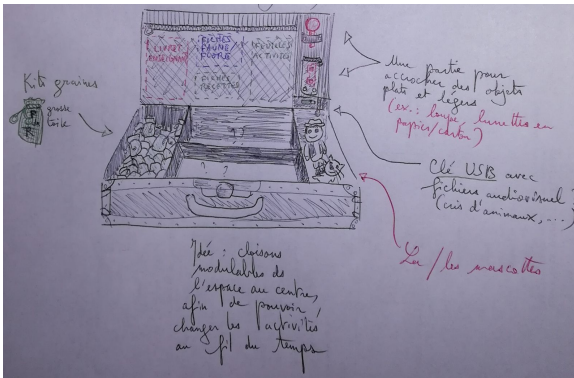 LIVRET
ENSEIGNANT
FICHES
FAUNE
FLORE
FEUILLES
ACTIVITÉS
FICHES
RECETTES
Kits graines
grosse
toile
Une partie pour
accrocher des objets
plats et légers
(ex.: loupe, lunettes en
papier/carton)
Clé USB avec
fichiers audiovisuel ?
(cris d'animaux, ...)
La/les mascottes
? ?
Idée : cloisons
modulables ds
l'espace au centre,
afin de pouvoir
changer les activités
au fil du temps